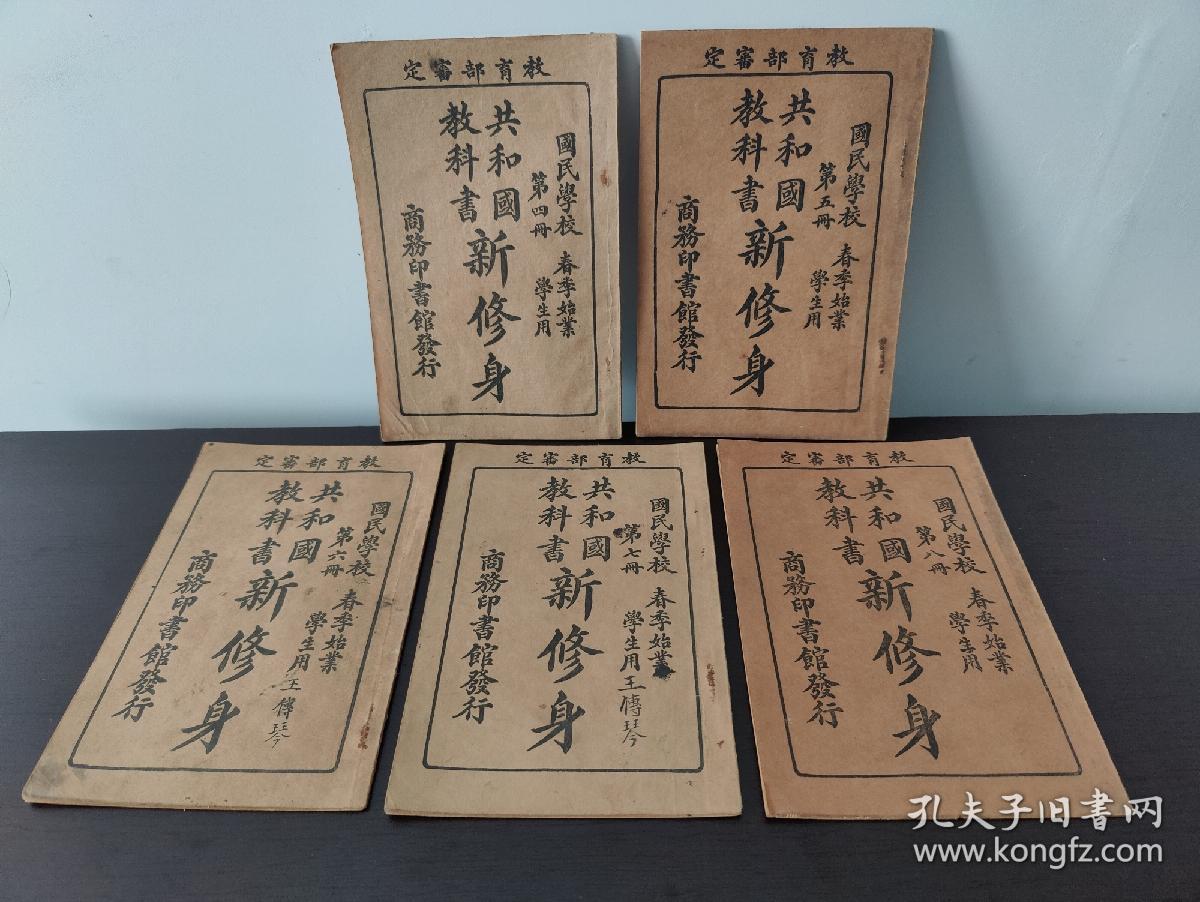 定審部育教
國民學校 春季始業
第四冊 學生用
共和國
教科書
新修身
商務印書館發行
定審部育教
國民學校 春季始業
第五冊 學生用
共和國
教科書
新修身
商務印書館發行
定審部育教
國民學校 春季始業
第六冊 學生用 王傳琴
共和國
教科書
新修身
商務印書館發行
定審部育教
國民學校 春季始業
第七冊 學生用 王傳琴
共和國
教科書
新修身
商務印書館發行
定審部育教
國民學校 春季始業
第八冊 學生用
共和國
教科書
新修身
商務印書館發行
孔夫子旧书网
www.kongfz.com